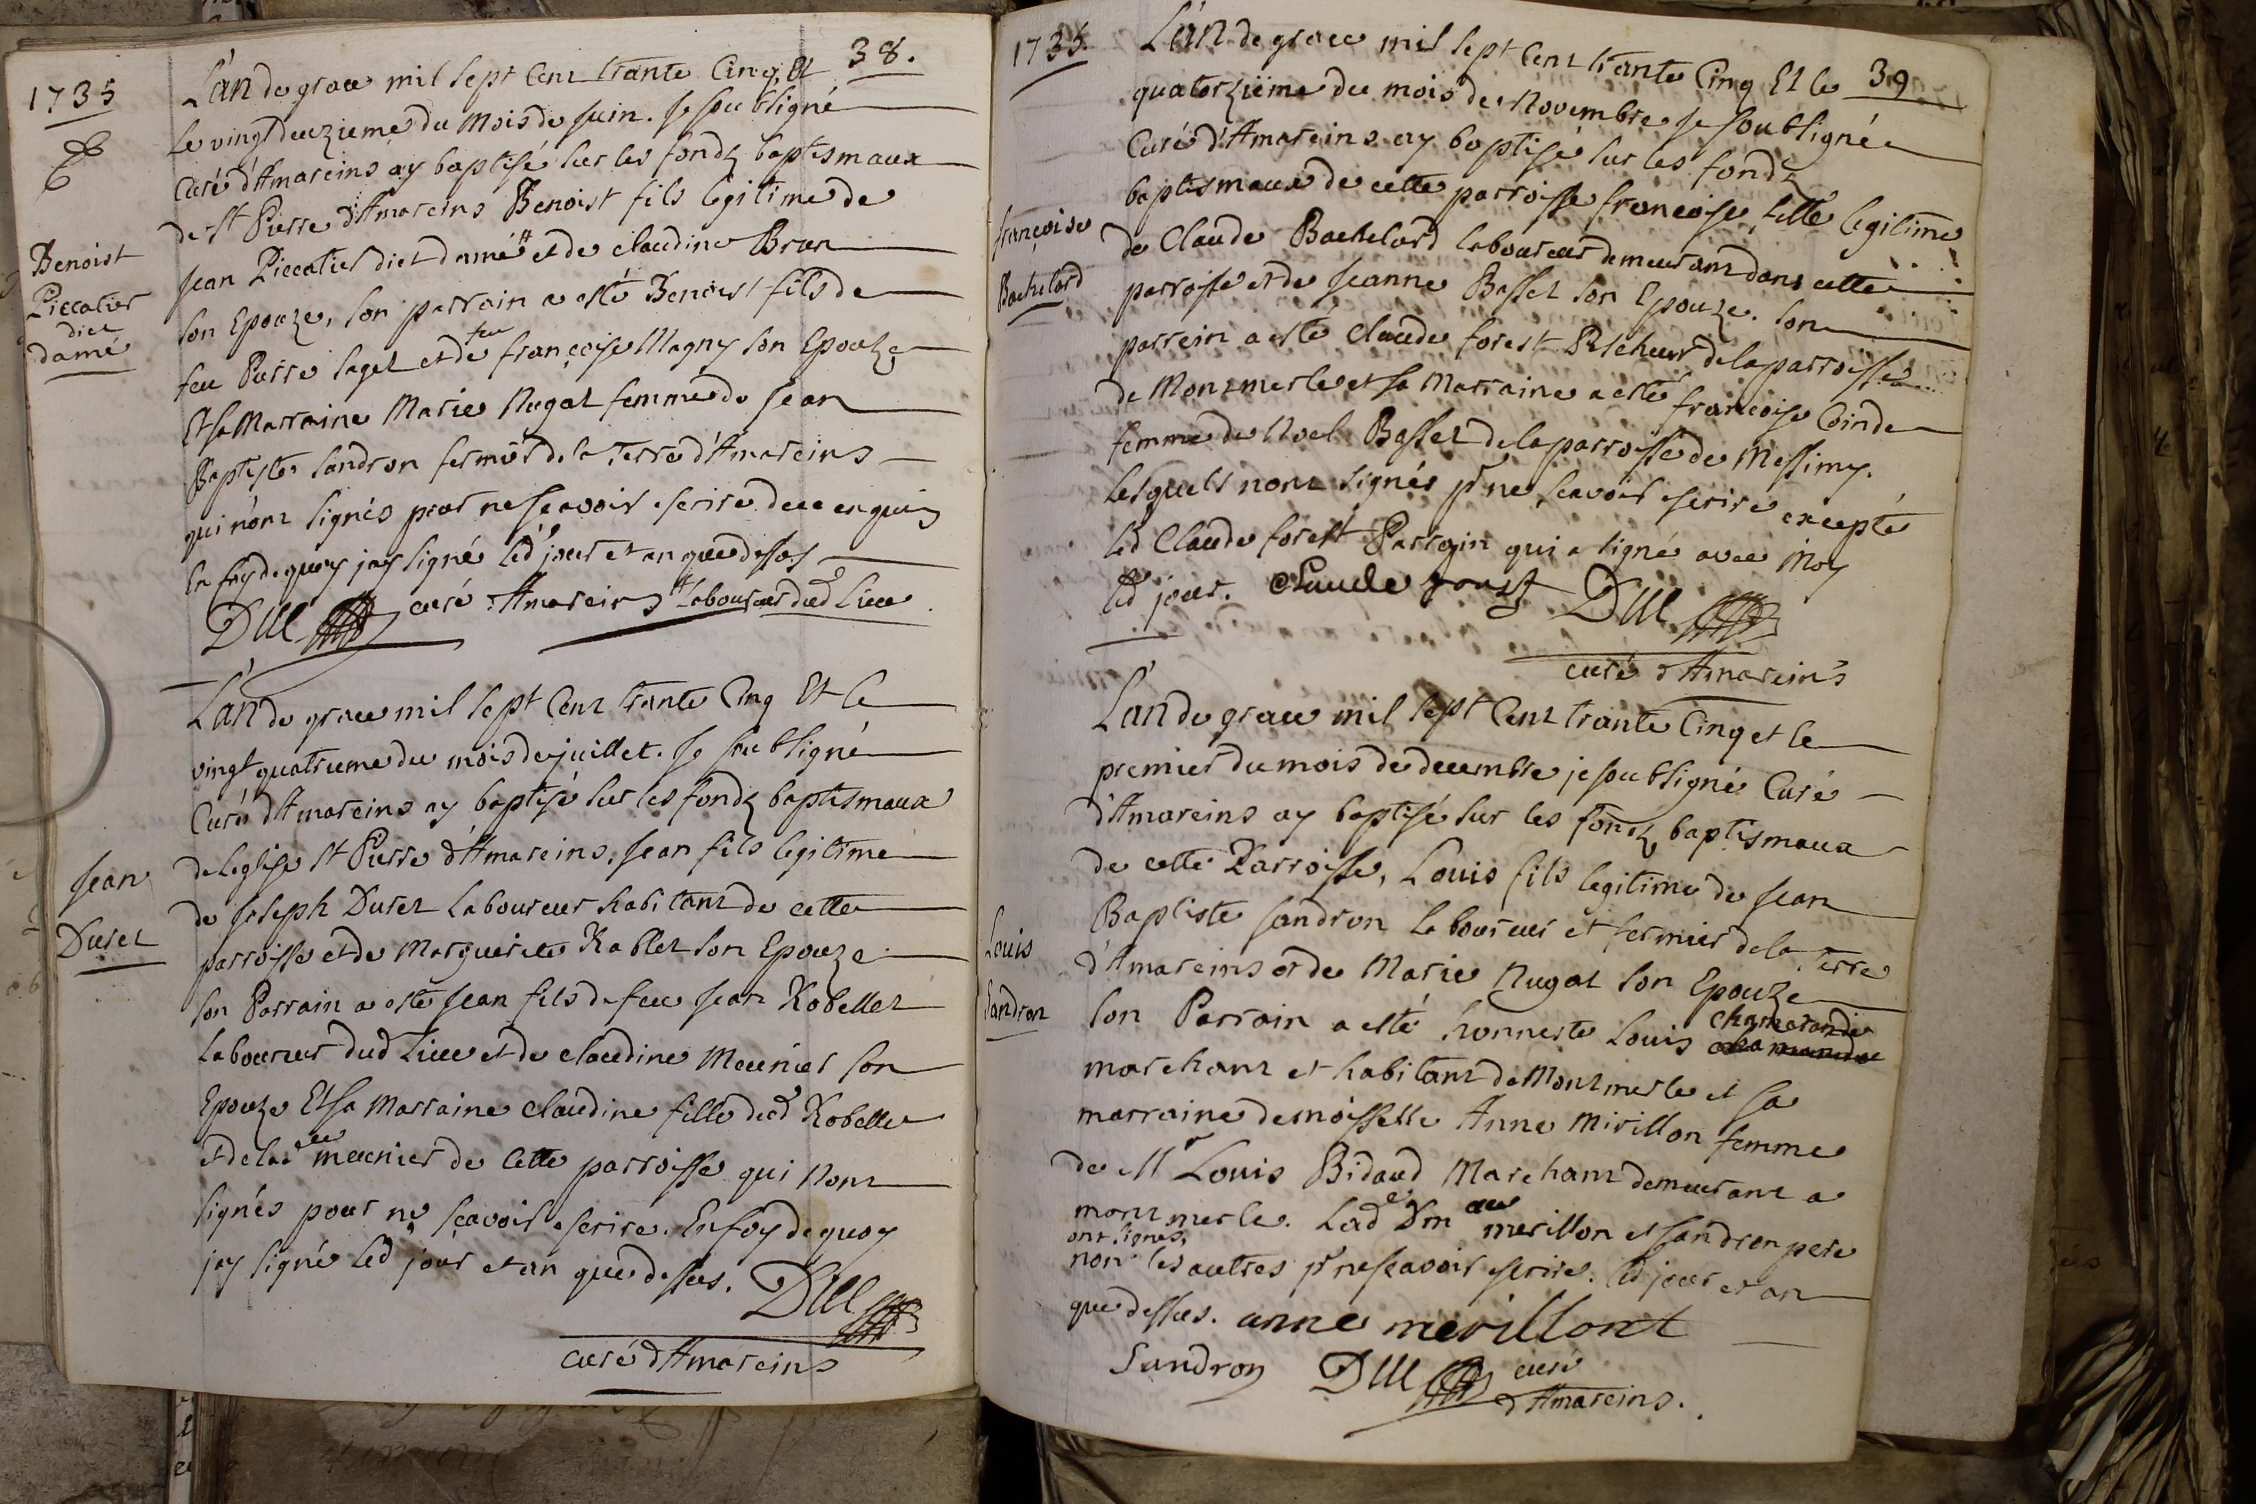 1735
38.
L'an de grace mil sept Cent trante Cinq, Et
le vingt deuzieme du Mois de Juin. Je soubsigné
Curé d'Amareins ay baptisé sur les fondz baptismaux
de St Pierre d'Amareins Benoist fils legitime de
Jean Piccatier dict damé # et de claudine Brun
son Epouze, son parrain a esté Benoist fils de
feu Pierre saget et de feu françoise Magny son Epouze
Et sa Marraine Marie Nugat femme de Jean
Baptiste Sandron fermier de la Terre d'Amareins
qui n'ont signés pour ne sçavoir escrire de ce enquis
En foy de quoy jay signé led jour et an que dessos
Dul curé d'Amareins # Laboureur dud Lieu
Benoist
Piccatier
dict
damé
L'an de grace mil sept Cent trante Cinq Et le
vingt quatrieme du mois de juillet. Je soubsigné
Curé d'Amareins ay baptisé sur les fondz baptismaux
de leglise St Pierre d'Amareins, Jean fils legitime
de Joseph Duret Laboureur habitant de cette
parroisse et de Marguerite Rablet son Epouze
son Parrain a esté Jean fils de feu Jean Robellet
Laboureur dud Lieu et de claudine Meunier son
Epouze Et sa Marraine claudine fille dud Robelle
et de lad meunier de Cette parroisse qui Nont
signés pour ne sçavoir escrire. En foy de quoy
jay signé led jour et an que dessus. Dul
curé d'Amareins
Jean
Duret
1735.
39
L'an de grace mil sept Cent trante Cinq Et le
quatorziéme du mois de Novembre je soubsigné
Curé d'Amareins ay baptisé sur les fondz
baptismaux de cette parroisse francoise, fille legitime
de Claude Bachelard laboureur demeurant dans cette
parroisse et de Jeanne Basset son Epouze. son
parrein a esté Claude forest Pescheur de la parroisse
de Montmerle et sa Marraine a esté francoise Coinde
femme de Noel Basset de la parroisse de Messimy.
lesquels nont signés pr ne sçavoir escrire excepté
led Claude forest Parrain qui a signé avec Moy
led jour. Claude forest Dul
curé d'Amareins
françoise
Bachelard
L'an de grace mil sept Cent trante Cinq et le
premier du mois de decembre je soubsigné Curé
d'Amareins ay baptisé sur les fondz baptismaux
de cette Parroisse, Louis fils legitime de Jean
Baptiste Sandron Laboureur et fermier de la Terre
d'Amareins et de Marie Nugat son Epouze
son Parrain a esté honneste Louis chamarande
marchant et habitant de Montmerle et sa
marraine demoisselle Anne Mirillon femme
de Mr Louis Bidaud Marchant demeurant a
montmerle. Lade Dm elle merillon et Sandron pere
ont signes,
non les autres pr ne sçavoir escrire. led jour et an
que dessus. anne merillont
Sandron Dul curé
d'Amareins.
Louis
Sandron